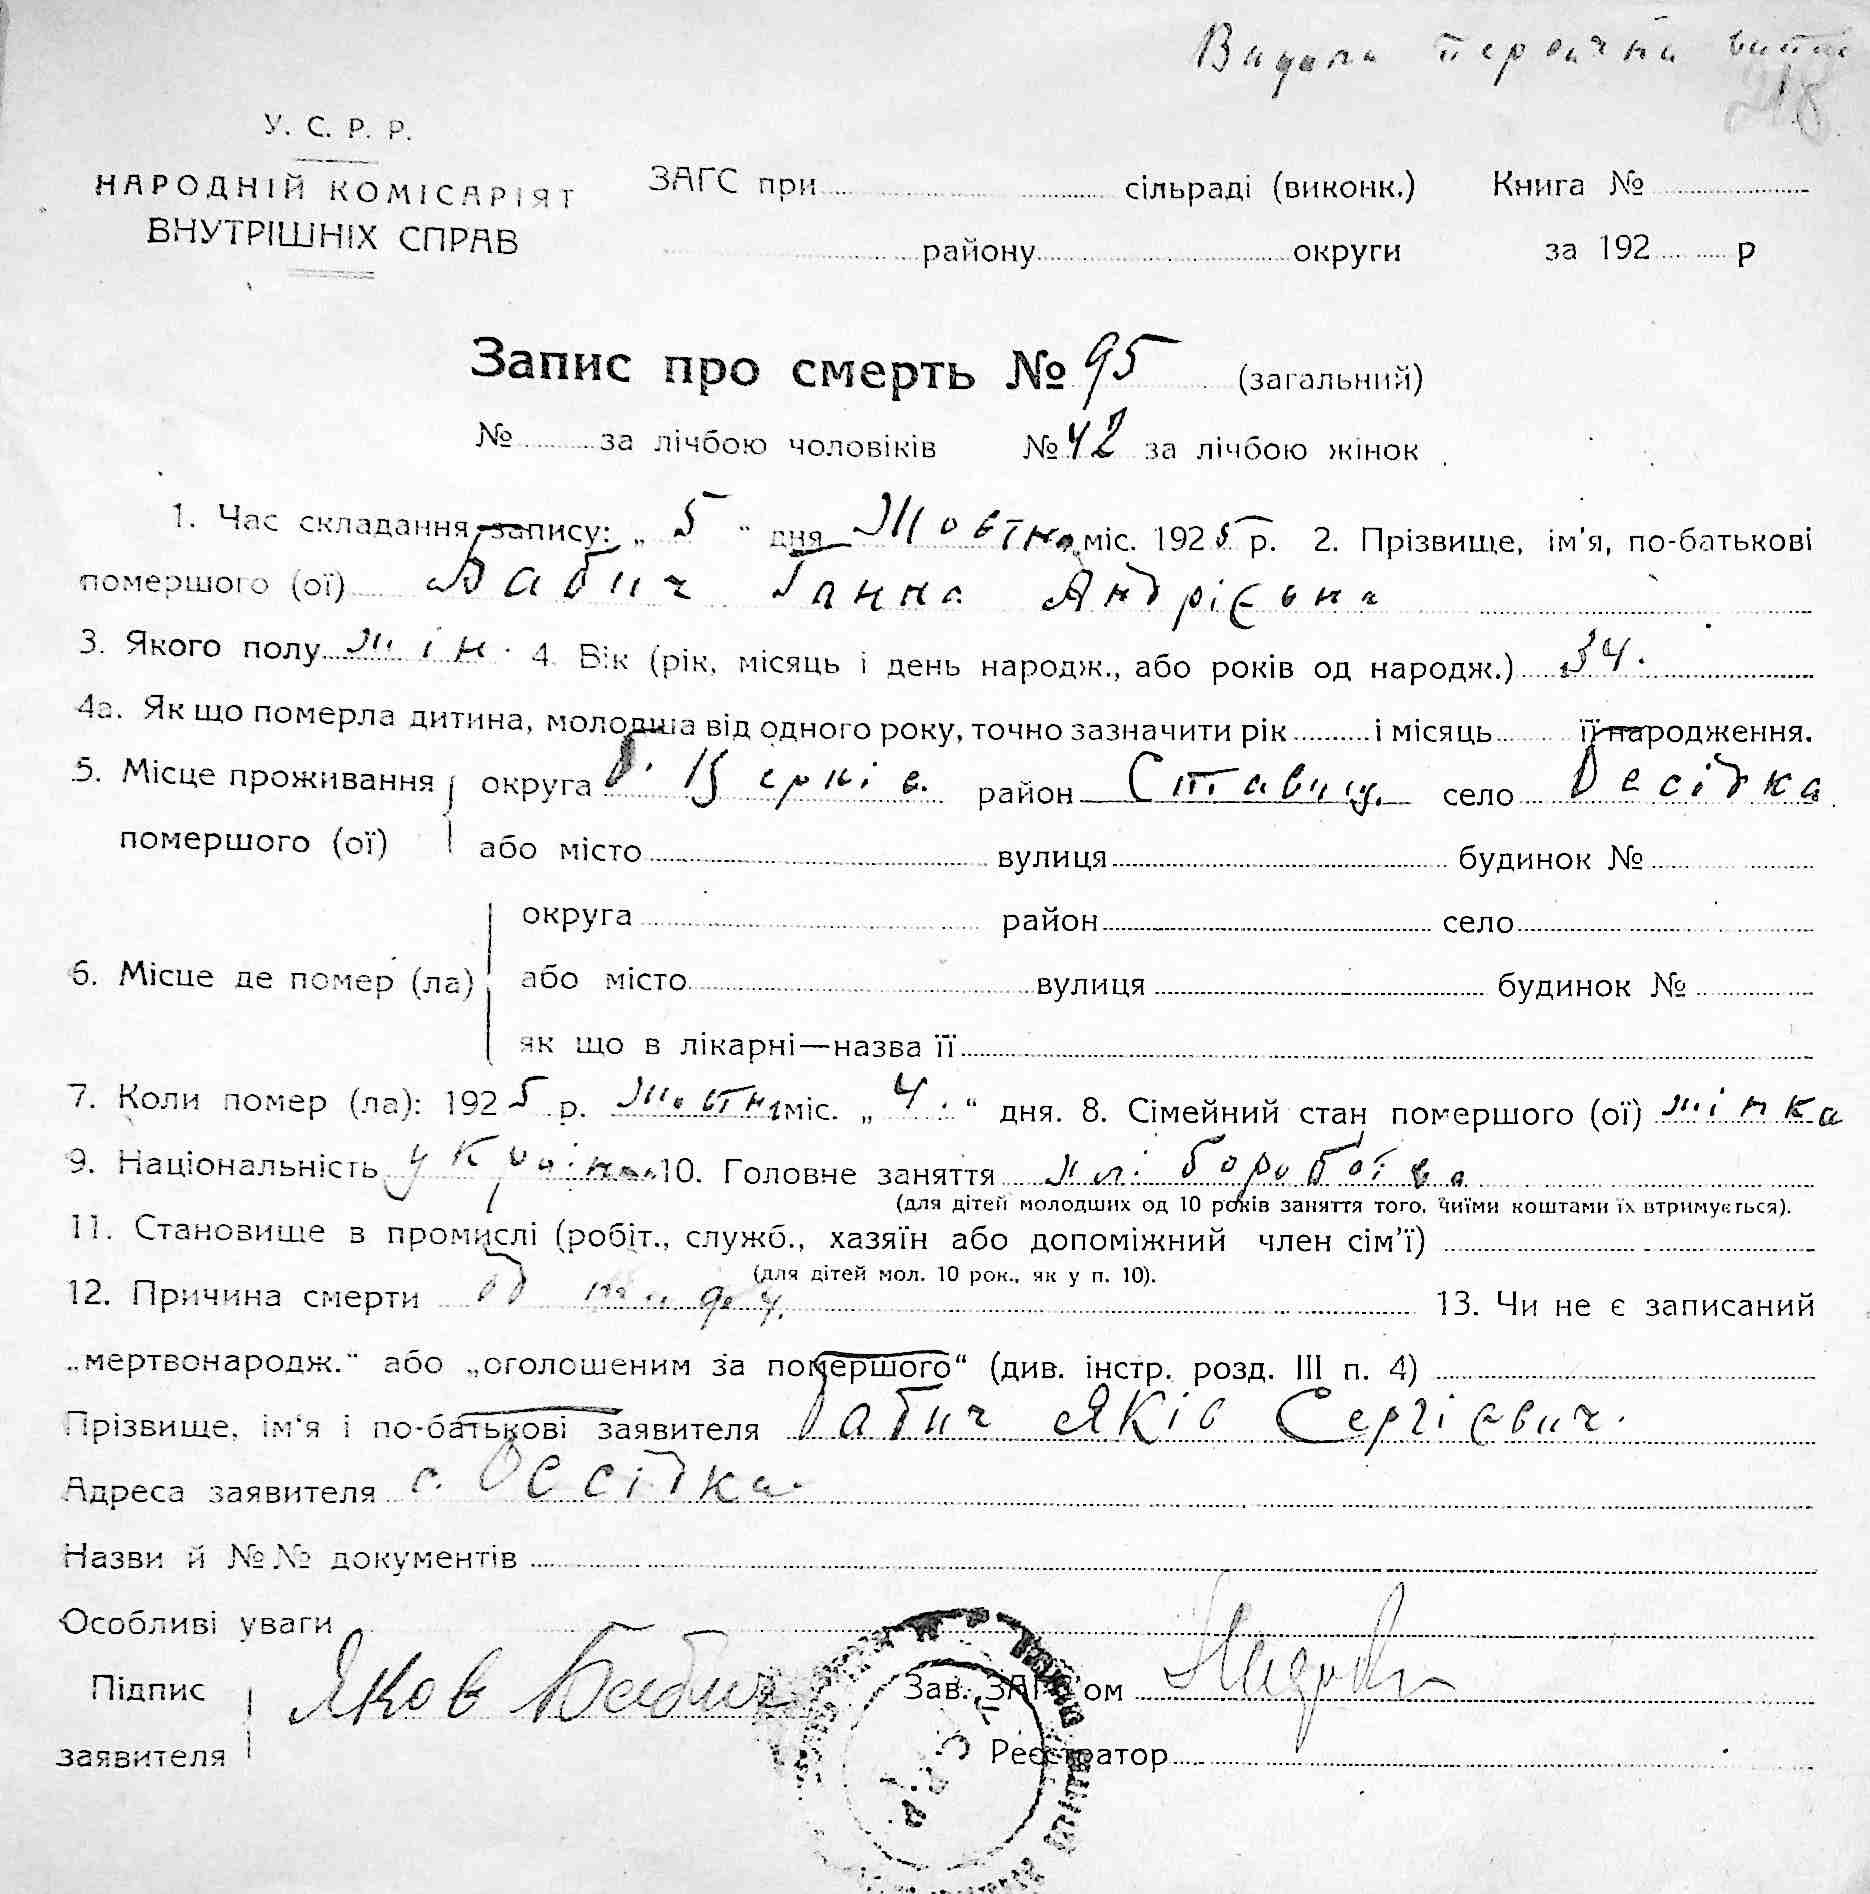 Видана первична випис
218
У. С. Р. Р.
НАРОДНІЙ КОМІСАРІЯТ
ВНУТРІШНІХ СПРАВ
ЗАГС при сільраді (виконк.) Книга №
району округи за 192 р
Запис про смерть № 95 (загальний)
№ за лічбою чоловіків № 42 за лічбою жінок
1. Час складання запису: „ 5 " дня Жовтня міс. 1925 р. 2. Прізвище, ім'я, по-батькові
помершого (ої) Бабич Ганна Андрієвна
3. Якого полу жін. 4. Вік (рік, місяць і день народж., або років од народж.) 34.
4а. Як що померла дитина, молодша від одного року, точно зазначити рік і місяць її народження.
5. Місце проживання округа Б. Церків. район Ставищ. село Бесідка
помершого (ої) або місто вулиця будинок №
округа район село
6. Місце де помер (ла) або місто вулиця будинок №
як що в лікарні—назва її
7. Коли помер (ла): 1925 р. Жовтня міс. „ 4. " дня. 8. Сімейний стан помершого (ої) жінка
9. Національність україн. 10. Головне заняття хліборобства
(для дітей молодших од 10 років заняття того, чиїми коштами їх втримується).
11. Становище в промислі (робіт., служб., хазяїн або допоміжний член сім'ї)
(для дітей мол. 10 рок., як у п. 10).
12. Причина смерти од 13. Чи не є записаний
„мертвонародж." або „оголошеним за помершого" (див. інстр. розд. III п. 4)
Прізвище, ім'я і по-батькові заявителя Бабич Яків Сергієвич.
Адреса заявителя с. Бесідка.
Назви й №№ документів
Особливі уваги
Підпис Яков Бабич Зав. ЗАГС'ом
заявителя Реєстратор